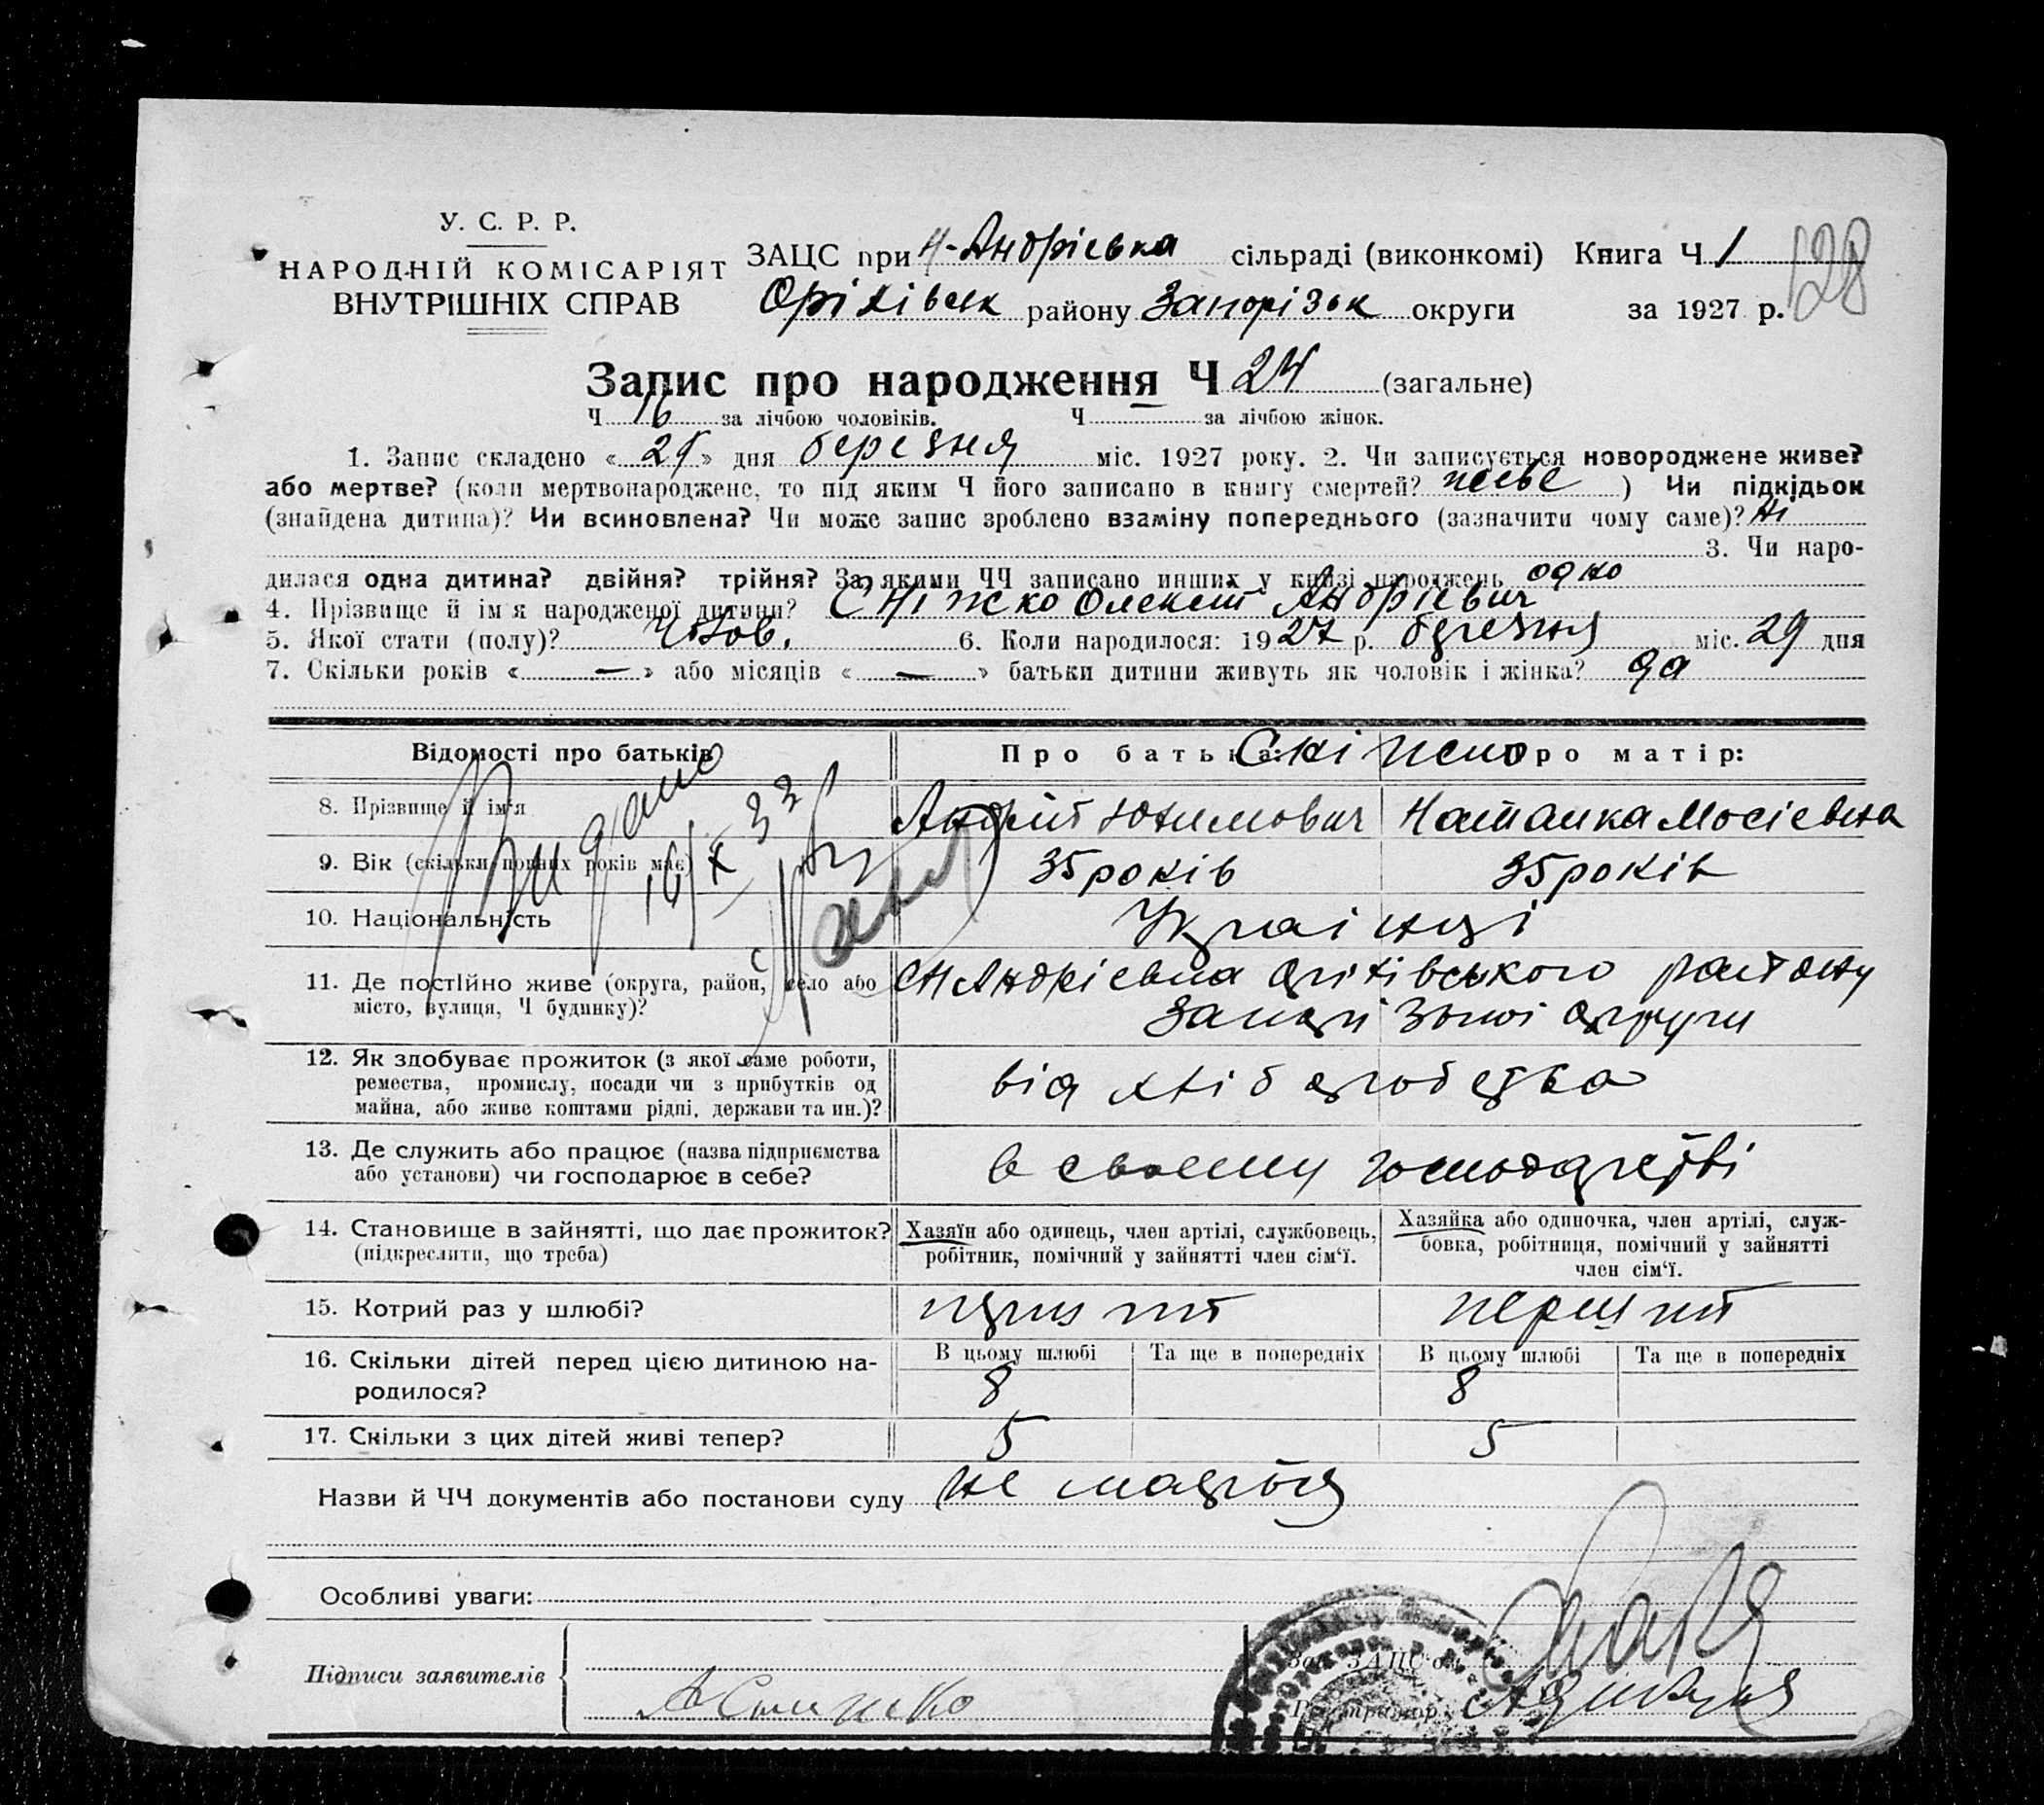 У. С. Р. Р.
НАРОДНІЙ КОМІСАРІЯТ
ВНУТРІШНІХ СПРАВ
ЗАЦС при Н-Андрієвка сільраді (виконкомі) Книга Ч 1
128
Оріхівськ району Запорізьк округи за 1927 р.
Запис про народження Ч 24 (загальне)
Ч 16 за лічбою чоловіків. Ч за лічбою жінок.
1. Запис складено « 29 » дня березня міс. 1927 року. 2. Чи записується новороджене живе?
або мертве? (коли мертвонароджене, то під яким Ч його записано в книгу смертей? живе ) Чи підкідьок
(знайдена дитина)? Чи всиновлена? Чи може запис зроблено взаміну попереднього (зазначити чому саме)? Ні
3. Чи наро-
дилася одна дитина? двійня? трійня? За якими ЧЧ записано инших у книзі народжень одно
4. Прізвище й ім'я народженої дитини? Сніжко Олексій Андрієвич
5. Якої стати (полу)? Чолов. 6. Коли народилося: 1927 р. березня міс. 29 дня
7. Скільки років « — » або місяців « — » батьки дитини живуть як чоловік і жінка? да
Відомості про батьків Про батька: Сніжко Про матір:
8. Прізвище й ім'я Андрій Юхимович Наталка Мосієвна
9. Вік (скільки повних років має) 35 років 35 років
10. Національність Українці
11. Де постійно живе (округа, район, село або місто, вулиця, Ч будинку)? с Н Андрієвка Оріхівського району
Запорізької округи
12. Як здобуває прожиток (з якої саме роботи, ремества, промислу, посади чи з прибутків од майна, або живе коштами рідні, держави та ин.)? від хліборобства
13. Де служить або працює (назва підприємства або установи) чи господарює в себе? в своєму господарстві
14. Становище в зайнятті, що дає прожиток? (підкреслити, що треба) Хазяїн або одинець, член артілі, службовець, робітник, помічний у зайнятті член сім'ї. Хазяйка або одиночка, член артілі, служ-
бовка, робітниця, помічний у зайнятті член сім'ї.
15. Котрий раз у шлюбі? перший перший
16. Скільки дітей перед цією дитиною на-
родилося? В цьому шлюбі 8 Та ще в попередніх В цьому шлюбі 8 Та ще в попередніх
17. Скільки з цих дітей живі тепер? 5 5
Назви й ЧЧ документів або постанови суду не мається
Особливі уваги:
Підписи заявителів А Сніжко
Зав. ЗАЦС'ом
Реєстратор